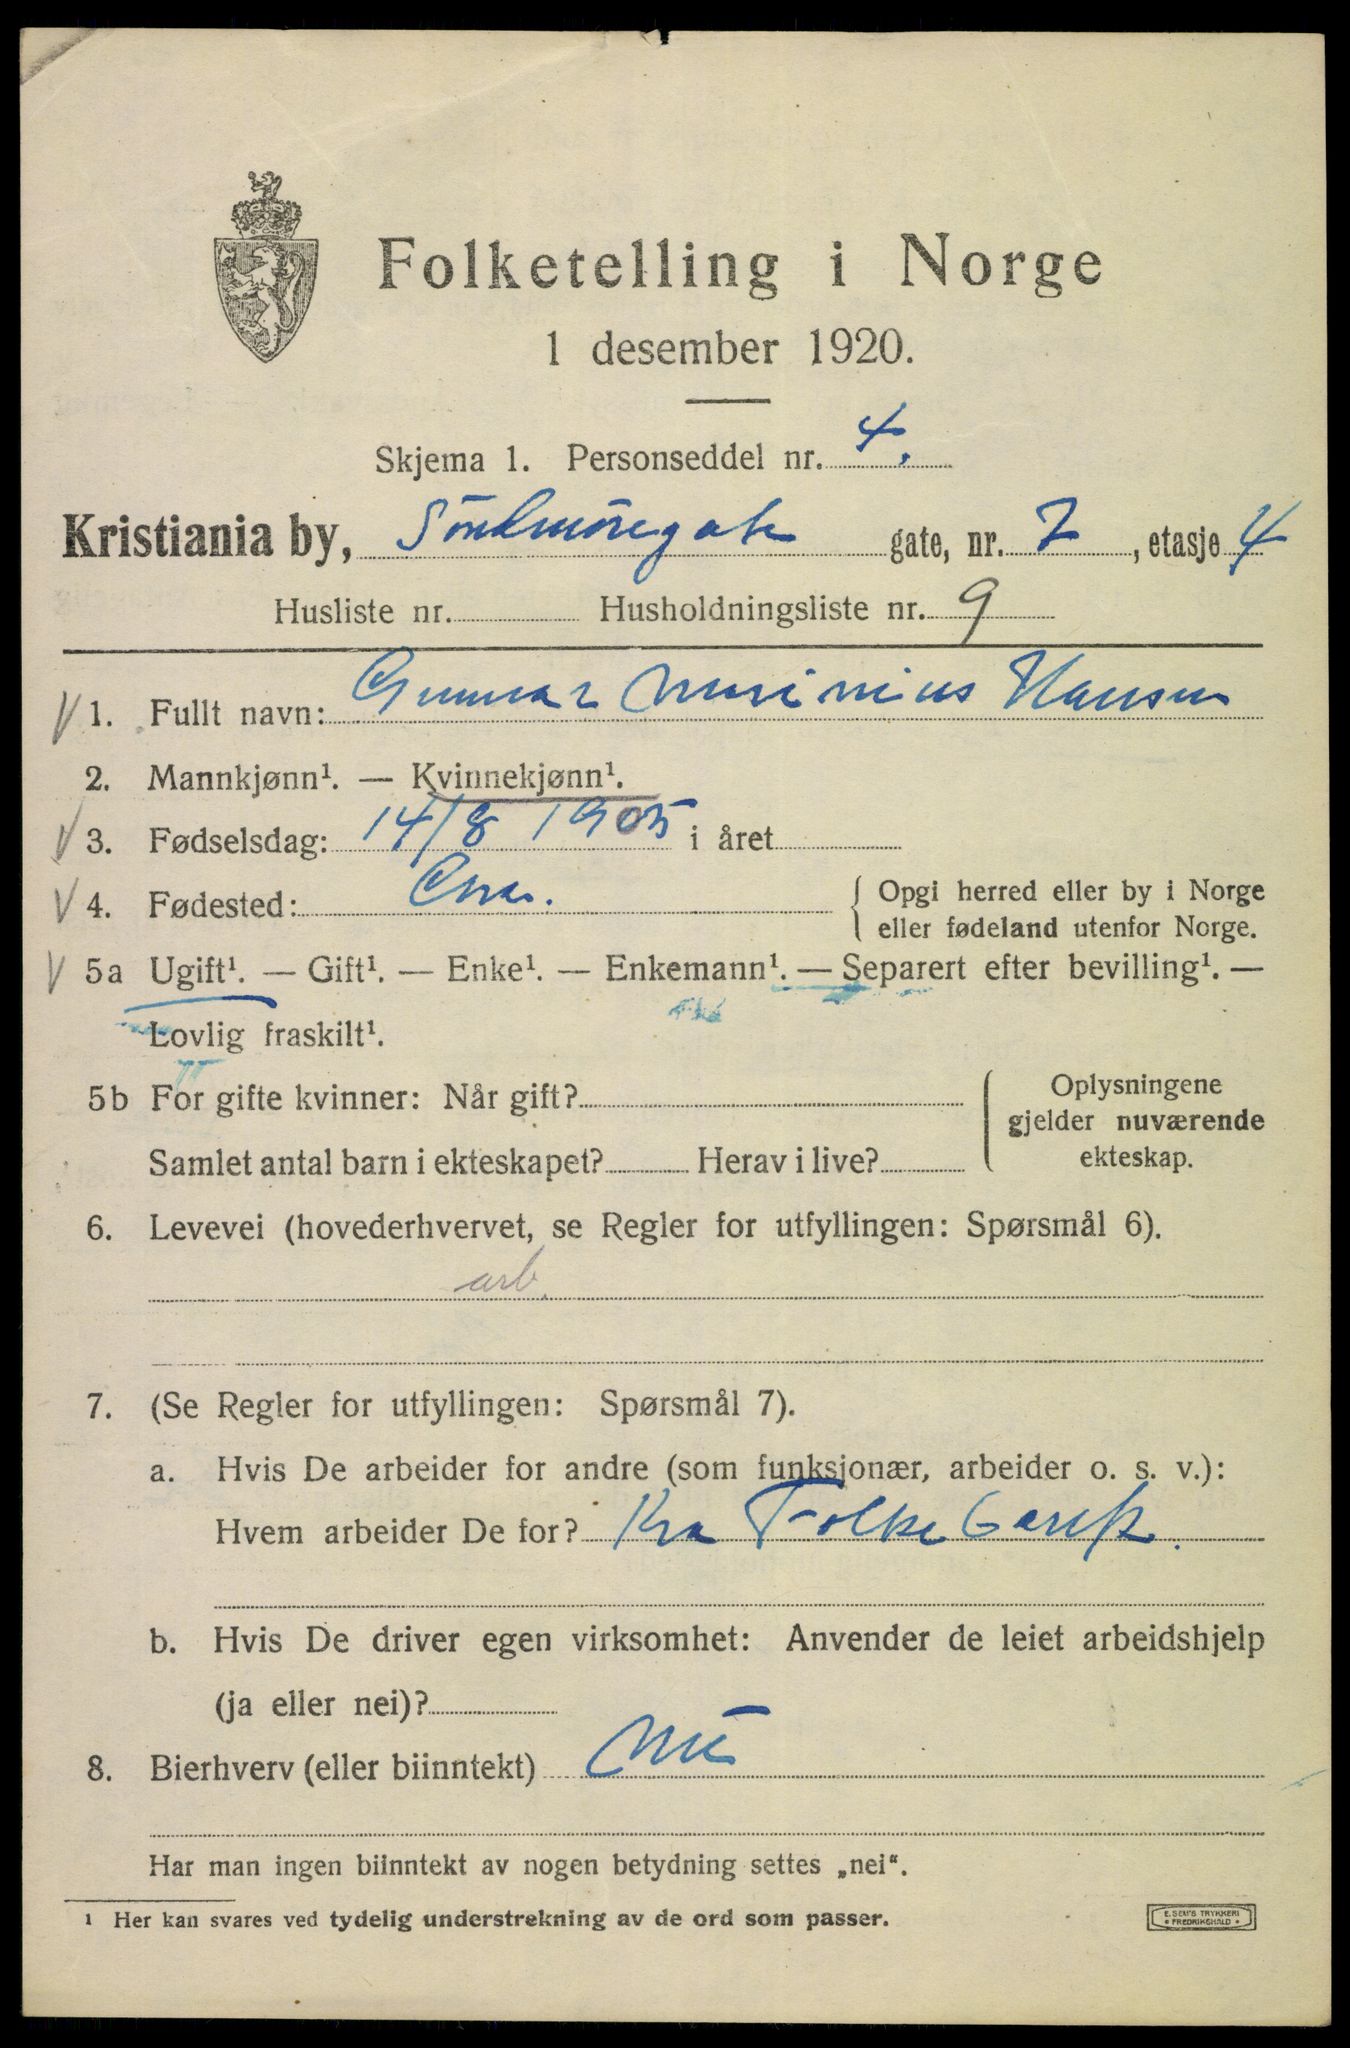 Folketelling i Norge
1 desember 1920.
Skjema 1. Personseddel nr. 4.
Kristiania by, Söndmöregate gate, nr. 7, etasje 4
Husliste nr. Husholdningsliste nr. 9
1. Fullt navn: Gunnar Marinius Hansen
2. Mannkjønn¹. — Kvinnekjønn¹.
3. Fødselsdag: 14/8 1905 i året
4. Fødested: Chra. { Opgi herred eller by i Norge
eller fødeland utenfor Norge.
5a Ugift¹. — Gift¹. — Enke¹. — Enkemann¹. — Separert efter bevilling¹. —
Lovlig fraskilt¹.
5b For gifte kvinner: Når gift?
Samlet antal barn i ekteskapet? Herav i live?
Oplysningene
gjelder nuværende
ekteskap.
6. Levevei (hovederhvervet, se Regler for utfyllingen: Spørsmål 6).
arb.
7. (Se Regler for utfyllingen: Spørsmål 7).
a. Hvis De arbeider for andre (som funksjonær, arbeider o. s. v.):
Hvem arbeider De for? Kra Folke
b. Hvis De driver egen virksomhet: Anvender de leiet arbeidshjelp
(ja eller nei)?
8. Bierhverv (eller biinntekt) Nei
Har man ingen biinntekt av nogen betydning settes „nei“.
¹ Her kan svares ved tydelig understrekning av de ord som passer.
E. SEM'S TRYKKERI
FREDRIKSHALD